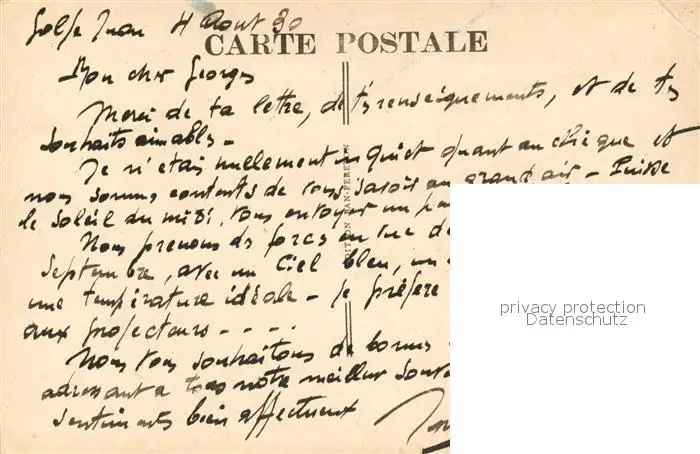 Golfe Juan 4 Aout 30
CARTE POSTALE
Mon cher Georges
Merci de ta lettre, de tes renseignements, et de tes
souhaits aimables -
Je n'étais nullement inquiet quant au chèque et
nous sommes contents de vous savoir au grand air - Puisse
le soleil du midi, vous envoyer un
Nous prenons des forces en vue de
Septembre, avec un ciel bleu, un
une température idéale - je préfère
aux projecteurs - - - -
Nous vous souhaitons de bonnes
adressant a tous notre meilleur
sentiments bien affectueux
privacy protection
Datenschutz